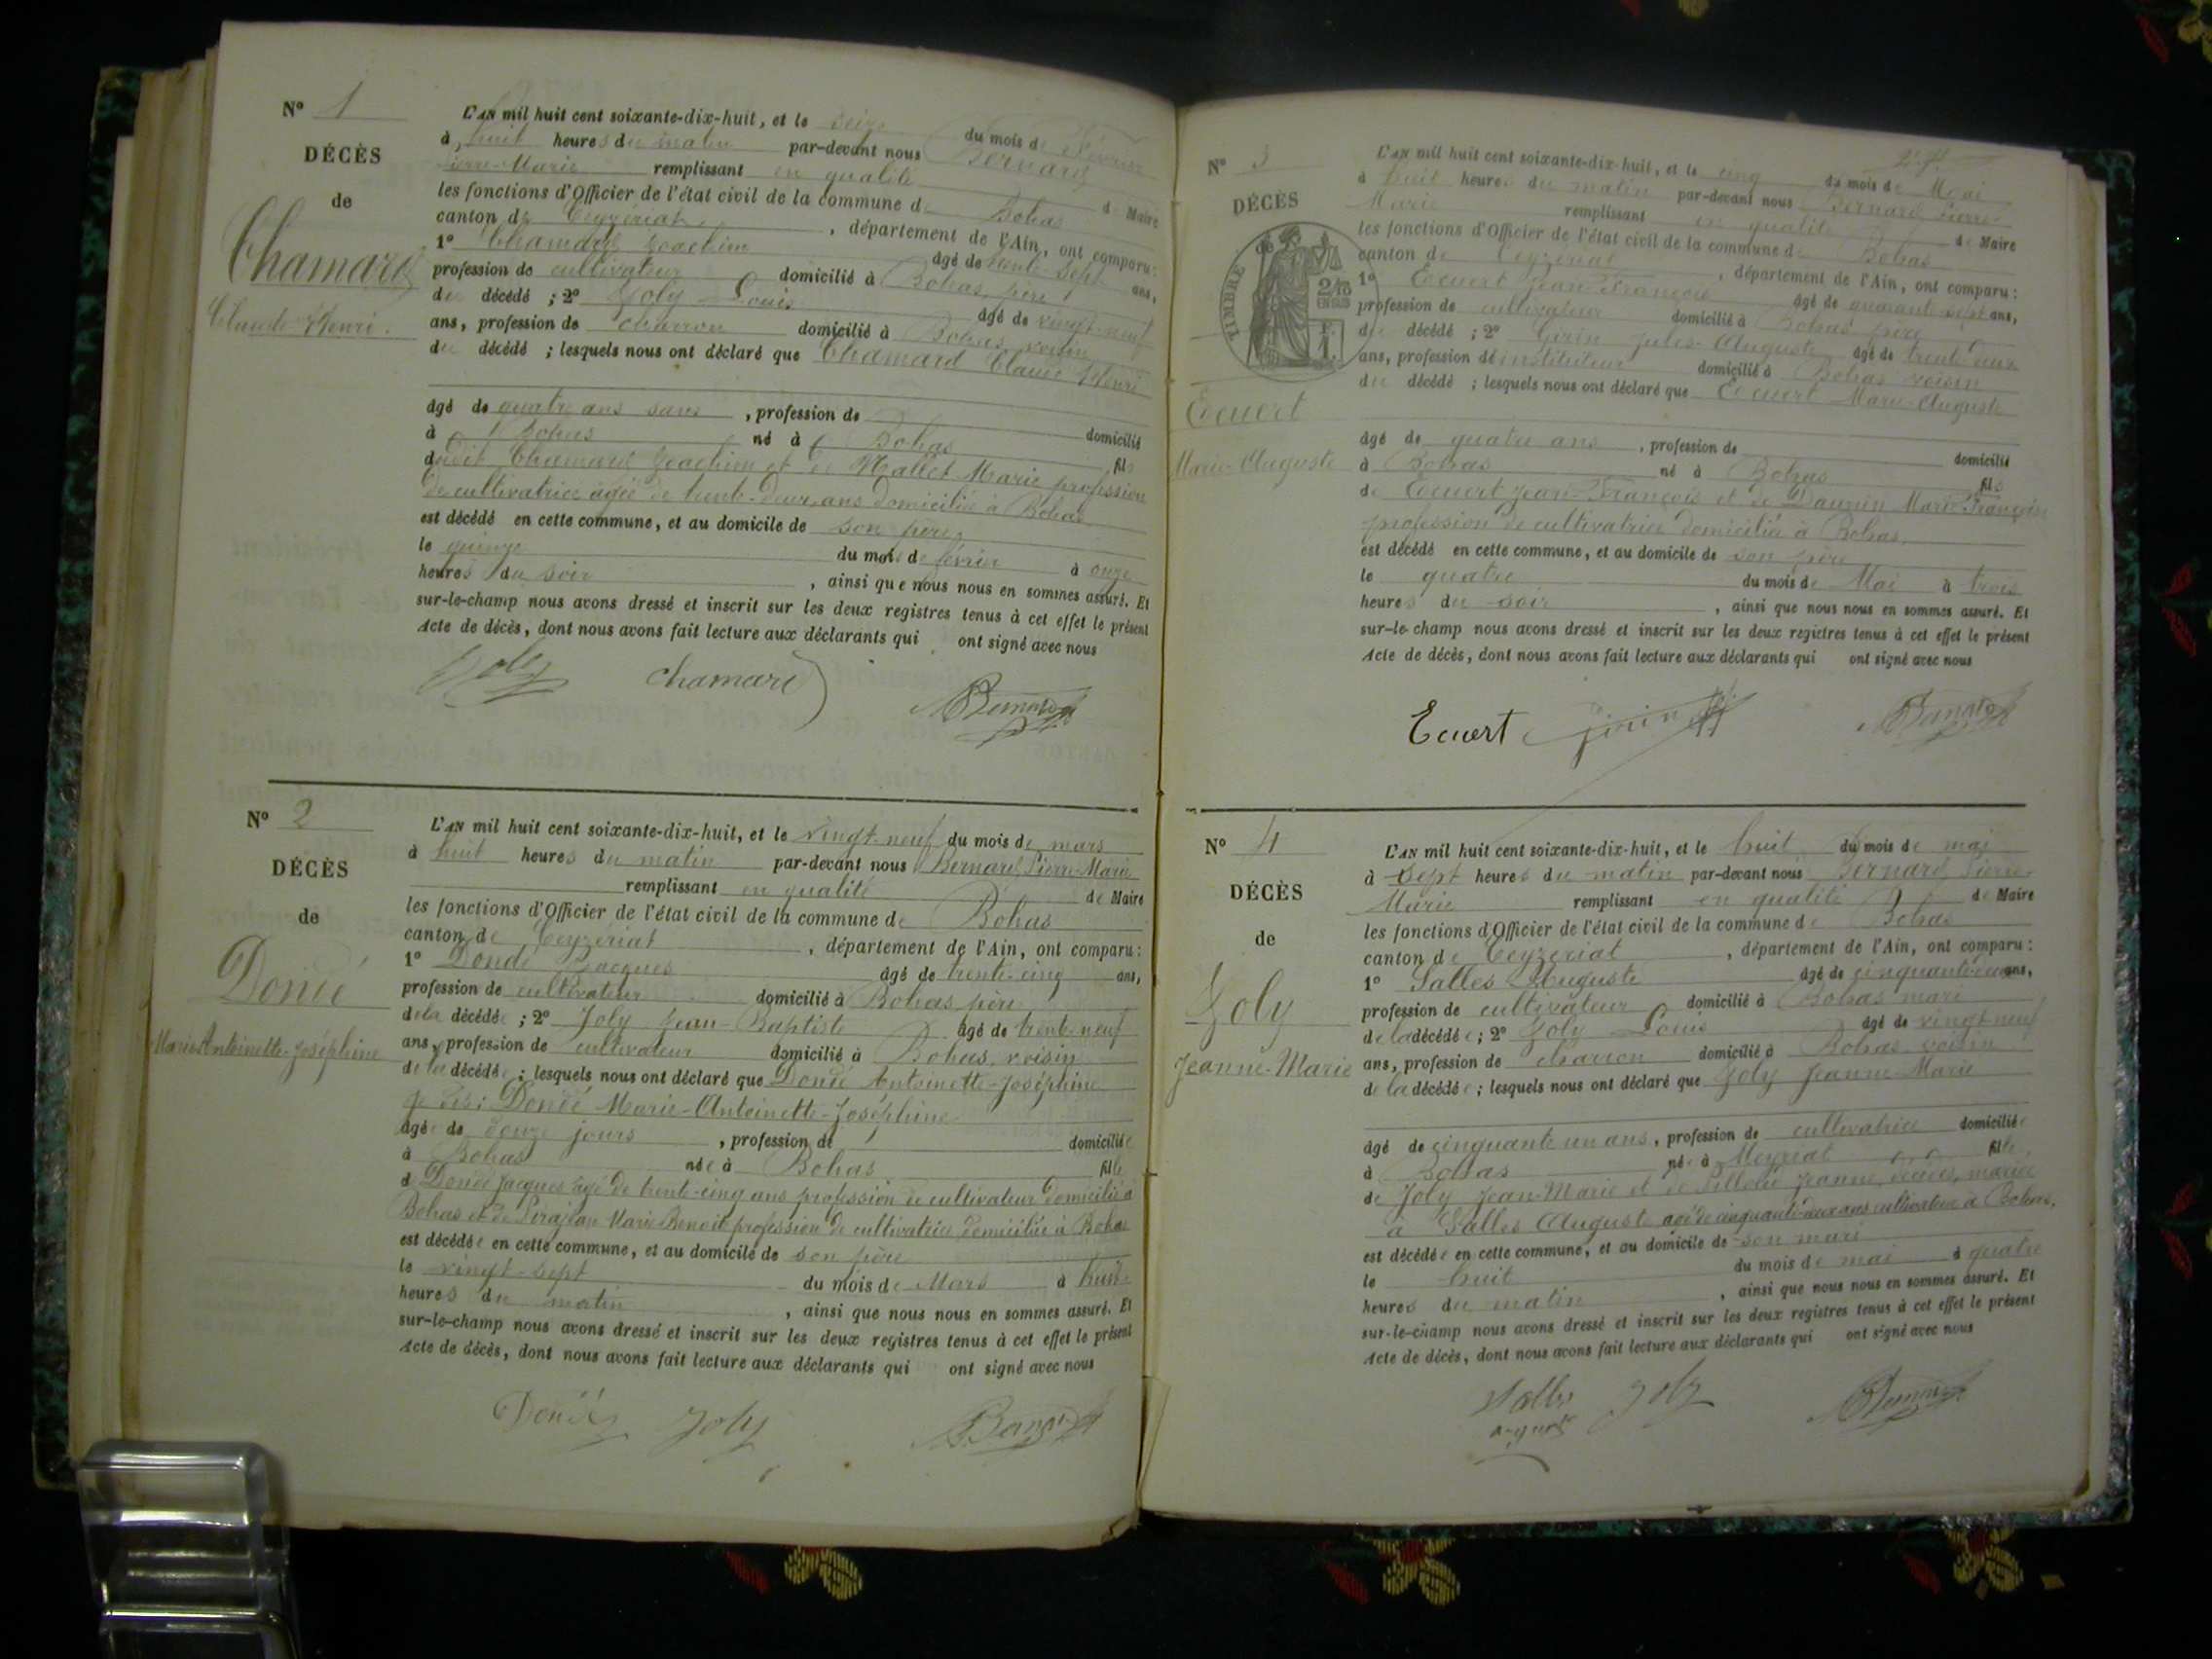 N° 1
DÉCÈS
de
Chamard
Claude Henri.
L'AN mil huit cent soixante-dix-huit, et le seize du mois de Février
à huit heures du matin par-devant nous Bernard
Pierre-Marie remplissant en qualité de Maire
les fonctions d'Officier de l'état civil de la commune de Bohas
canton de Ceyzériat, département de l'Ain, ont comparu:
1° Chamard Joachim âgé de trente-sept ans,
profession de cultivateur domicilié à Bohas, père
du décédé; 2° Joly Louis âgé de vingt-neuf
ans, profession de charron domicilié à Bohas voisin
du décédé; lesquels nous ont déclaré que Chamard Claude Henri
âgé de quatre ans sans, profession de domicilié
à Bohas né à Bohas fils
dudit Chamard Joachim et de Mallet Marie profession
de cultivatrice âgée de trente-deux ans domiciliée à Bohas
est décédé en cette commune, et au domicile de son père,
le quinze du mois de février à onze
heures du soir, ainsi que nous nous en sommes assuré. Et
sur-le-champ nous avons dressé et inscrit sur les deux registres tenus à cet effet le présent
Acte de décès, dont nous avons fait lecture aux déclarants qui ont signé avec nous
Joly Chamard Bernard
N° 2
DÉCÈS
de
Dondé
Marie Antoinette-Joséphine
L'AN mil huit cent soixante-dix-huit, et le vingt-neuf du mois de mars
à huit heures du matin par-devant nous Bernard Pierre-Marie
remplissant en qualité de Maire
les fonctions d'Officier de l'état civil de la commune de Bohas
canton de Ceyzériat, département de l'Ain, ont comparu:
1° Dondé Jacques âgé de trente-cinq ans,
profession de cultivateur domicilié à Bohas père
de la décédée; 2° Joly Jean-Baptiste âgé de trente-neuf
ans, profession de cultivateur domicilié à Bohas, voisin
de la décédée; lesquels nous ont déclaré que Dondé Antoinette-Joséphine
Dondé Marie-Antoinette-Joséphine
âgée de douze jours, profession de domiciliée
à Bohas née à Bohas fille
d Dondé Jacques âgé de trente-cinq ans profession de cultivateur domicilié à
Bohas et de Marie Benoit profession de cultivatrice domiciliée à Bohas
est décédée en cette commune, et au domicile de son père
le vingt-sept du mois de Mars à huit
heures du matin, ainsi que nous nous en sommes assuré. Et
sur-le-champ nous avons dressé et inscrit sur les deux registres tenus à cet effet le présent
Acte de décès, dont nous avons fait lecture aux déclarants qui ont signé avec nous
Dondé Joly Bernard
N° 3
DÉCÈS
TIMBRE
2/10
EN SUS
1F.
Ecuert
Marie-Auguste
L'AN mil huit cent soixante-dix-huit, et le cinq du mois de Mai
à huit heures du matin par-devant nous Bernard Pierre-
Marie remplissant en qualité de Maire
les fonctions d'Officier de l'état civil de la commune de Bohas
canton de Ceyzériat, département de l'Ain, ont comparu:
1° Ecuert Jean-François âgé de quarante sept ans,
profession de cultivateur domicilié à Bohas père
du décédé; 2° Jules-Auguste âgé de trente-deux
ans, profession de instituteur domicilié à Bohas voisin
du décédé; lesquels nous ont déclaré que Ecuert Marie-Auguste
âgé de quatre ans, profession de domicilié
à Bohas né à Bohas fils
de Ecuert Jean-François et de Daunin Marie Françoise
profession de cultivatrice domiciliée à Bohas
est décédé en cette commune, et au domicile de son père
le quatre du mois de Mai à trois
heures du soir, ainsi que nous nous en sommes assuré. Et
sur-le-champ nous avons dressé et inscrit sur les deux registres tenus à cet effet le présent
Acte de décès, dont nous avons fait lecture aux déclarants qui ont signé avec nous
Ecuert Bernard
N° 4
DÉCÈS
de
Joly
Jeanne-Marie
L'AN mil huit cent soixante-dix-huit, et le huit du mois de mai
à sept heures du matin par-devant nous Bernard Pierre-
Marie remplissant en qualité de Maire
les fonctions d'Officier de l'état civil de la commune de Bohas
canton de Ceyzériat, département de l'Ain, ont comparu:
1° Salles Auguste âgé de cinquante-deux ans,
profession de cultivateur domicilié à Bohas mari
de la décédée; 2° Joly Louis âgé de vingt neuf
ans, profession de charron domicilié à Bohas voisin
de la décédée; lesquels nous ont déclaré que Joly Jeanne-Marie
âgé de cinquante un ans, profession de cultivatrice domiciliée
à Bohas née à Meyriat fille
de Joly Jean-Marie et de Jeanne, décédés, mariée
à Salles Auguste âgé de cinquante-deux ans cultivateur à Bohas,
est décédée en cette commune, et au domicile de son mari
le huit du mois de mai à quatre
heures du matin, ainsi que nous nous en sommes assuré. Et
sur-le-champ nous avons dressé et inscrit sur les deux registres tenus à cet effet le présent
Acte de décès, dont nous avons fait lecture aux déclarants qui ont signé avec nous
Salles Joly Bernard